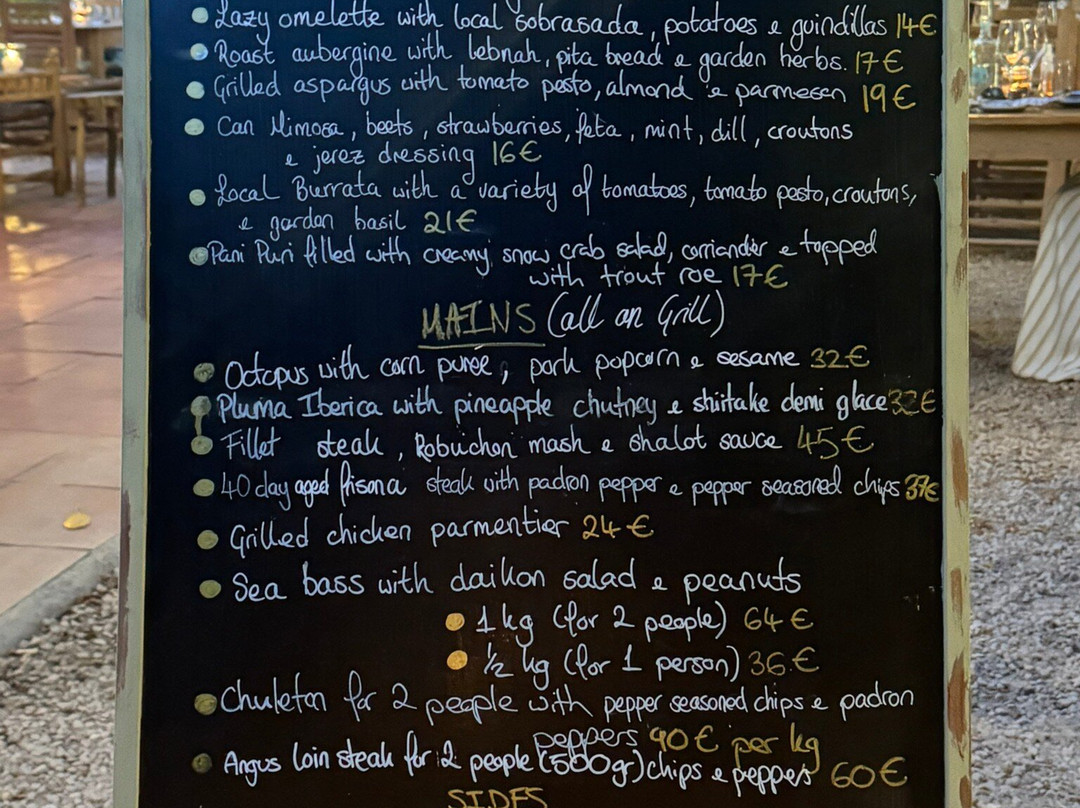 Lazy omelette with local sobrasada, potatoes e guindillas 14€
Roast aubergine with lebnah, pita bread e garden herbs. 17€
Grilled aspargus with tomato pesto, almond e parmesan 19€
Can Mimosa, beets, strawberries, feta, mint, dill, croutons
e jerez dressing 16€
Local Burrata with a variety of tomatoes, tomato pesto, croutons,
e garden basil 21€
Pani Puri filled with creamy snow crab salad, corriander e topped
with trout roe 17€
MAINS (all on Grill)
Octopus with corn puree, pork popcorn e sesame 32€
Pluma Iberica with pineapple chutney e shiitake demi glace 32€
Fillet steak, Robuchon mash e shalot sauce 45€
40 day aged frisona steak with padron pepper e pepper seasoned chips 37€
Grilled chicken parmentier 24€
Sea bass with daikon salad e peanuts
1 kg (for 2 people) 64€
1/2 kg (for 1 person) 36€
Chuleton for 2 people with pepper seasoned chips e padron
peppers 90€ per kg
Angus loin steak for 2 people (500gr) chips e peppers 60€
SIDES